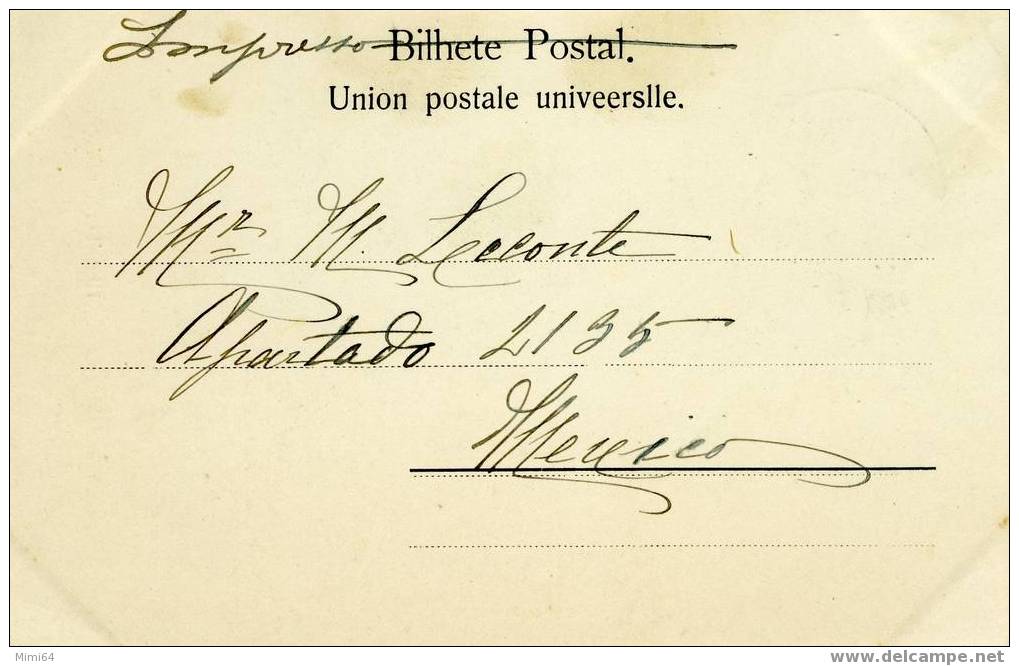 Impresso Bilhete Postal.
Union postale univeerslle.
Mr M. Leconte
Apartado 2135
Mexico
Mimi64
www.delcampe.net